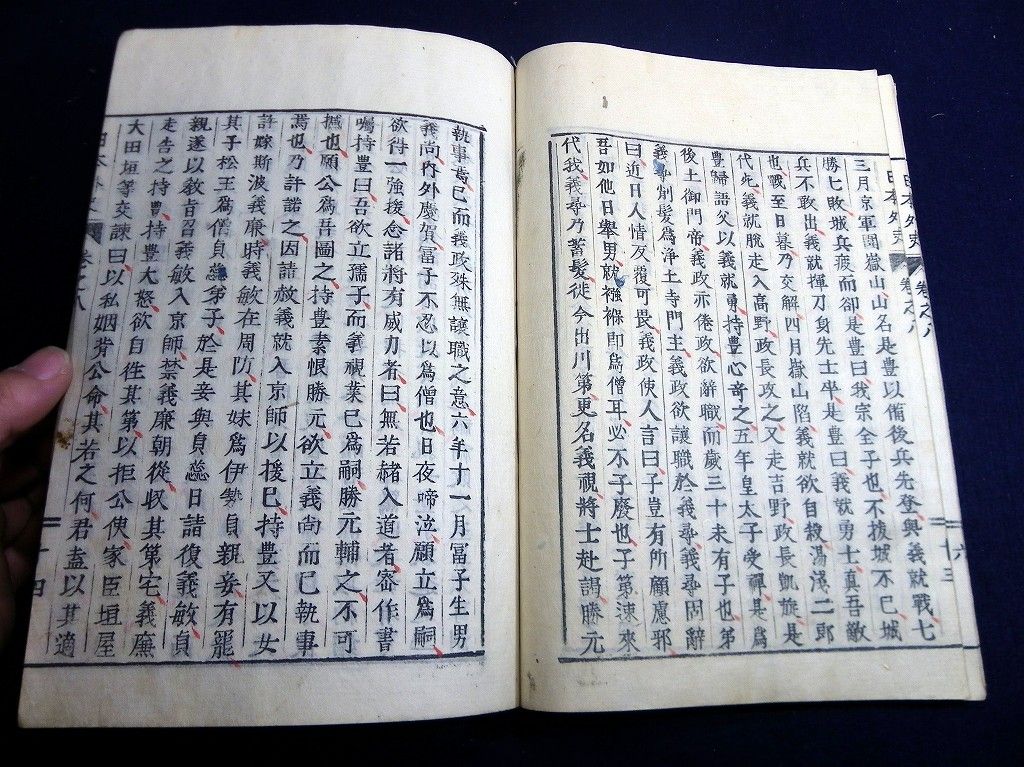 日本外史 卷之八 十三
三月京軍圍嶽山山名是豊以備後兵先登與義就戰七
勝七敗城兵疲而卻是豊曰我宗全子也不拔城不已城
兵不敢出義就揮刀身先士卒是豊曰義就勇士真吾敵
也戰至日暮乃交解四月嶽山陷義就欲自殺湯淺二郎
代死義就脫走入高野政長攻之又走吉野政長凱旋是
豊歸語父以義就勇持豊心奇之五年皇太子受禪是爲
後土御門帝義政亦倦政欲辭職而歲三十未有子也第
義尋削髮爲淨土寺門主義政欲讓職於義尋義尋固辭
曰近日人情反復可畏義政使人言曰子豈有所顧慮邪
吾如他日擧男就襁褓即爲僧耳必不子廢也子第速來
代我義尋乃蓄髮徙今出川第更名義視將士赴謁勝元
執事焉已而義政殊無讓職之意六年十一月冨子生男
義尚內外慶賀冨子不忍以爲僧也日夜啼泣願立爲嗣
欲得一強援念諸將有威力者曰無若緒入道者密作書
囑持豊曰吾欲立孺子而義視業已爲嗣勝元輔之不可
撼也願公爲吾圖之持豊素恨勝元欲立義尚而已執事
焉也乃許諾之因請赦義就入京師以援已持豊又以女
許嫁斯波義廉時義敏在周防其妹爲伊勢貞親妾有寵
其子松王爲僧貞蘂弟子於是妾與貞蘂日請復義敏貞
親遂以敎旨召義敏入京師禁義廉朝從収其第宅義廉
走告之持豊持豊大怒欲自往其第以拒公使家臣垣屋
大田垣等交諫曰以私姻背公命其若之何君盍以其適
日本外史 卷之八 十四